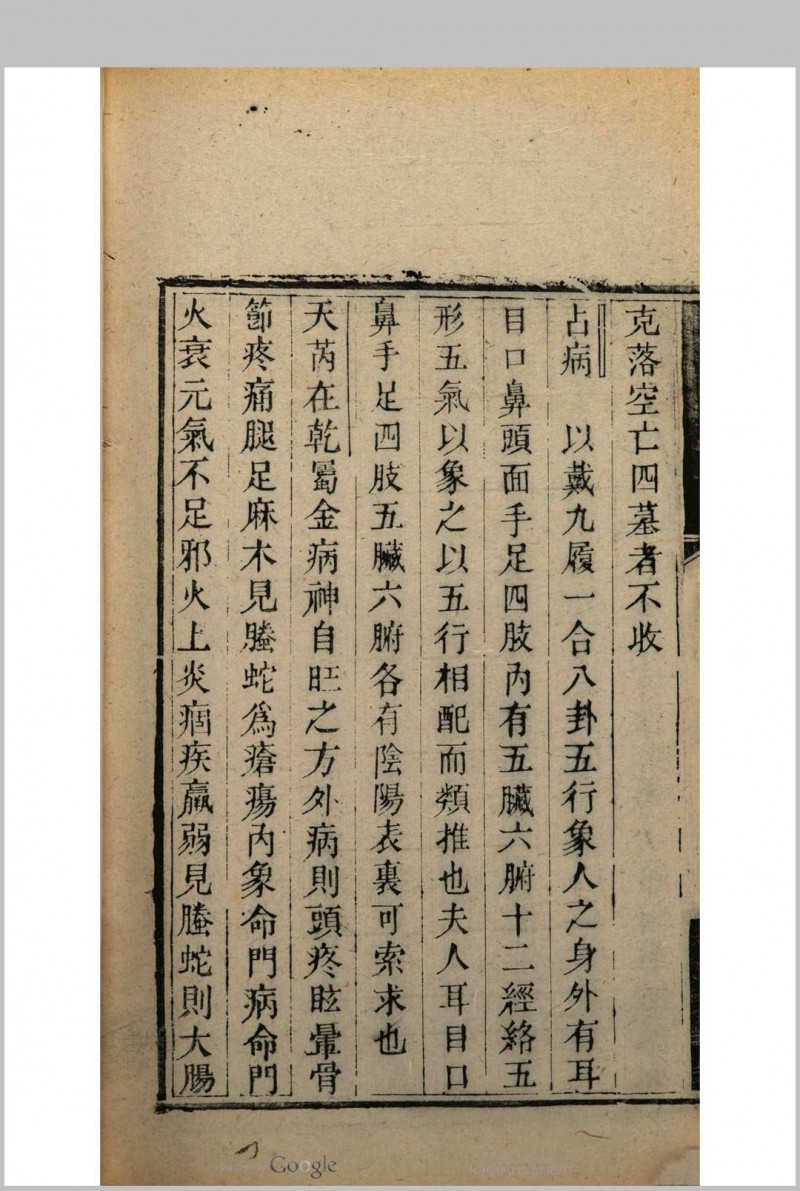 克落空亡四墓者不收
占病　以戴九履一合八卦五行象人之身外有耳
目口鼻頭面手足四肢內有五臟六腑十二經絡五
形五氣以象之以五行相配而類推也夫人耳目口
鼻手足四肢五臟六腑各有陰陽表裏可索求也
天芮在乾屬金病神自旺之方外病則頭疼眩暈骨
節疼痛腿足麻木見螣蛇為瘡瘍內象命門病命門
火衰元氣不足邪火上炎痼疾羸弱見螣蛇則大腸
Google